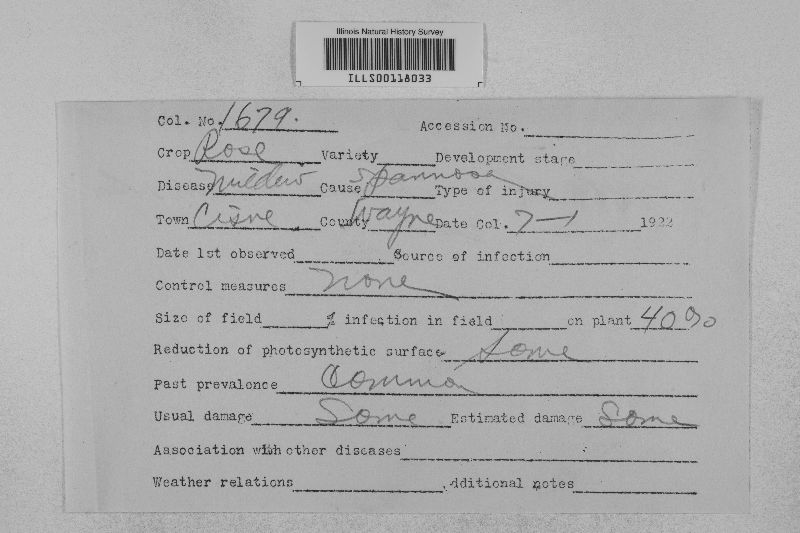 Illinois Natural History Survey
ILLS00118033
Col. No. 1679. Accession No.
Crop Rose Variety Development stage
Disease Mildew Cause S. pannosa Type of injury
Town Cisne County Wayne Date Col. 7-1 1922
Date 1st observed Source of infection
Control measures None
Size of field % infection in field on plant 40%
Reduction of photosynthetic surface Some
Past prevalence Common
Usual damage Some Estimated damage Some
Association with other diseases
Weather relations Additional notes